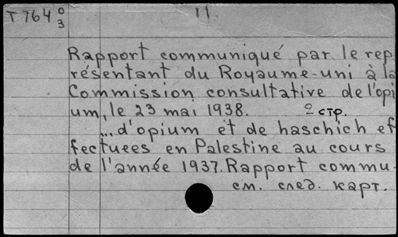 T 764 0/3 11.
Rapport communiqué par le rep
résentant du Royaume-uni à la
Commission consultative de l'opi
um, le 23 mai 1938. 2 стр.
...d'opium et de haschich ef
fectuees en Palestine au cours
de l'année 1937. Rapport commu-
см. след. карт.